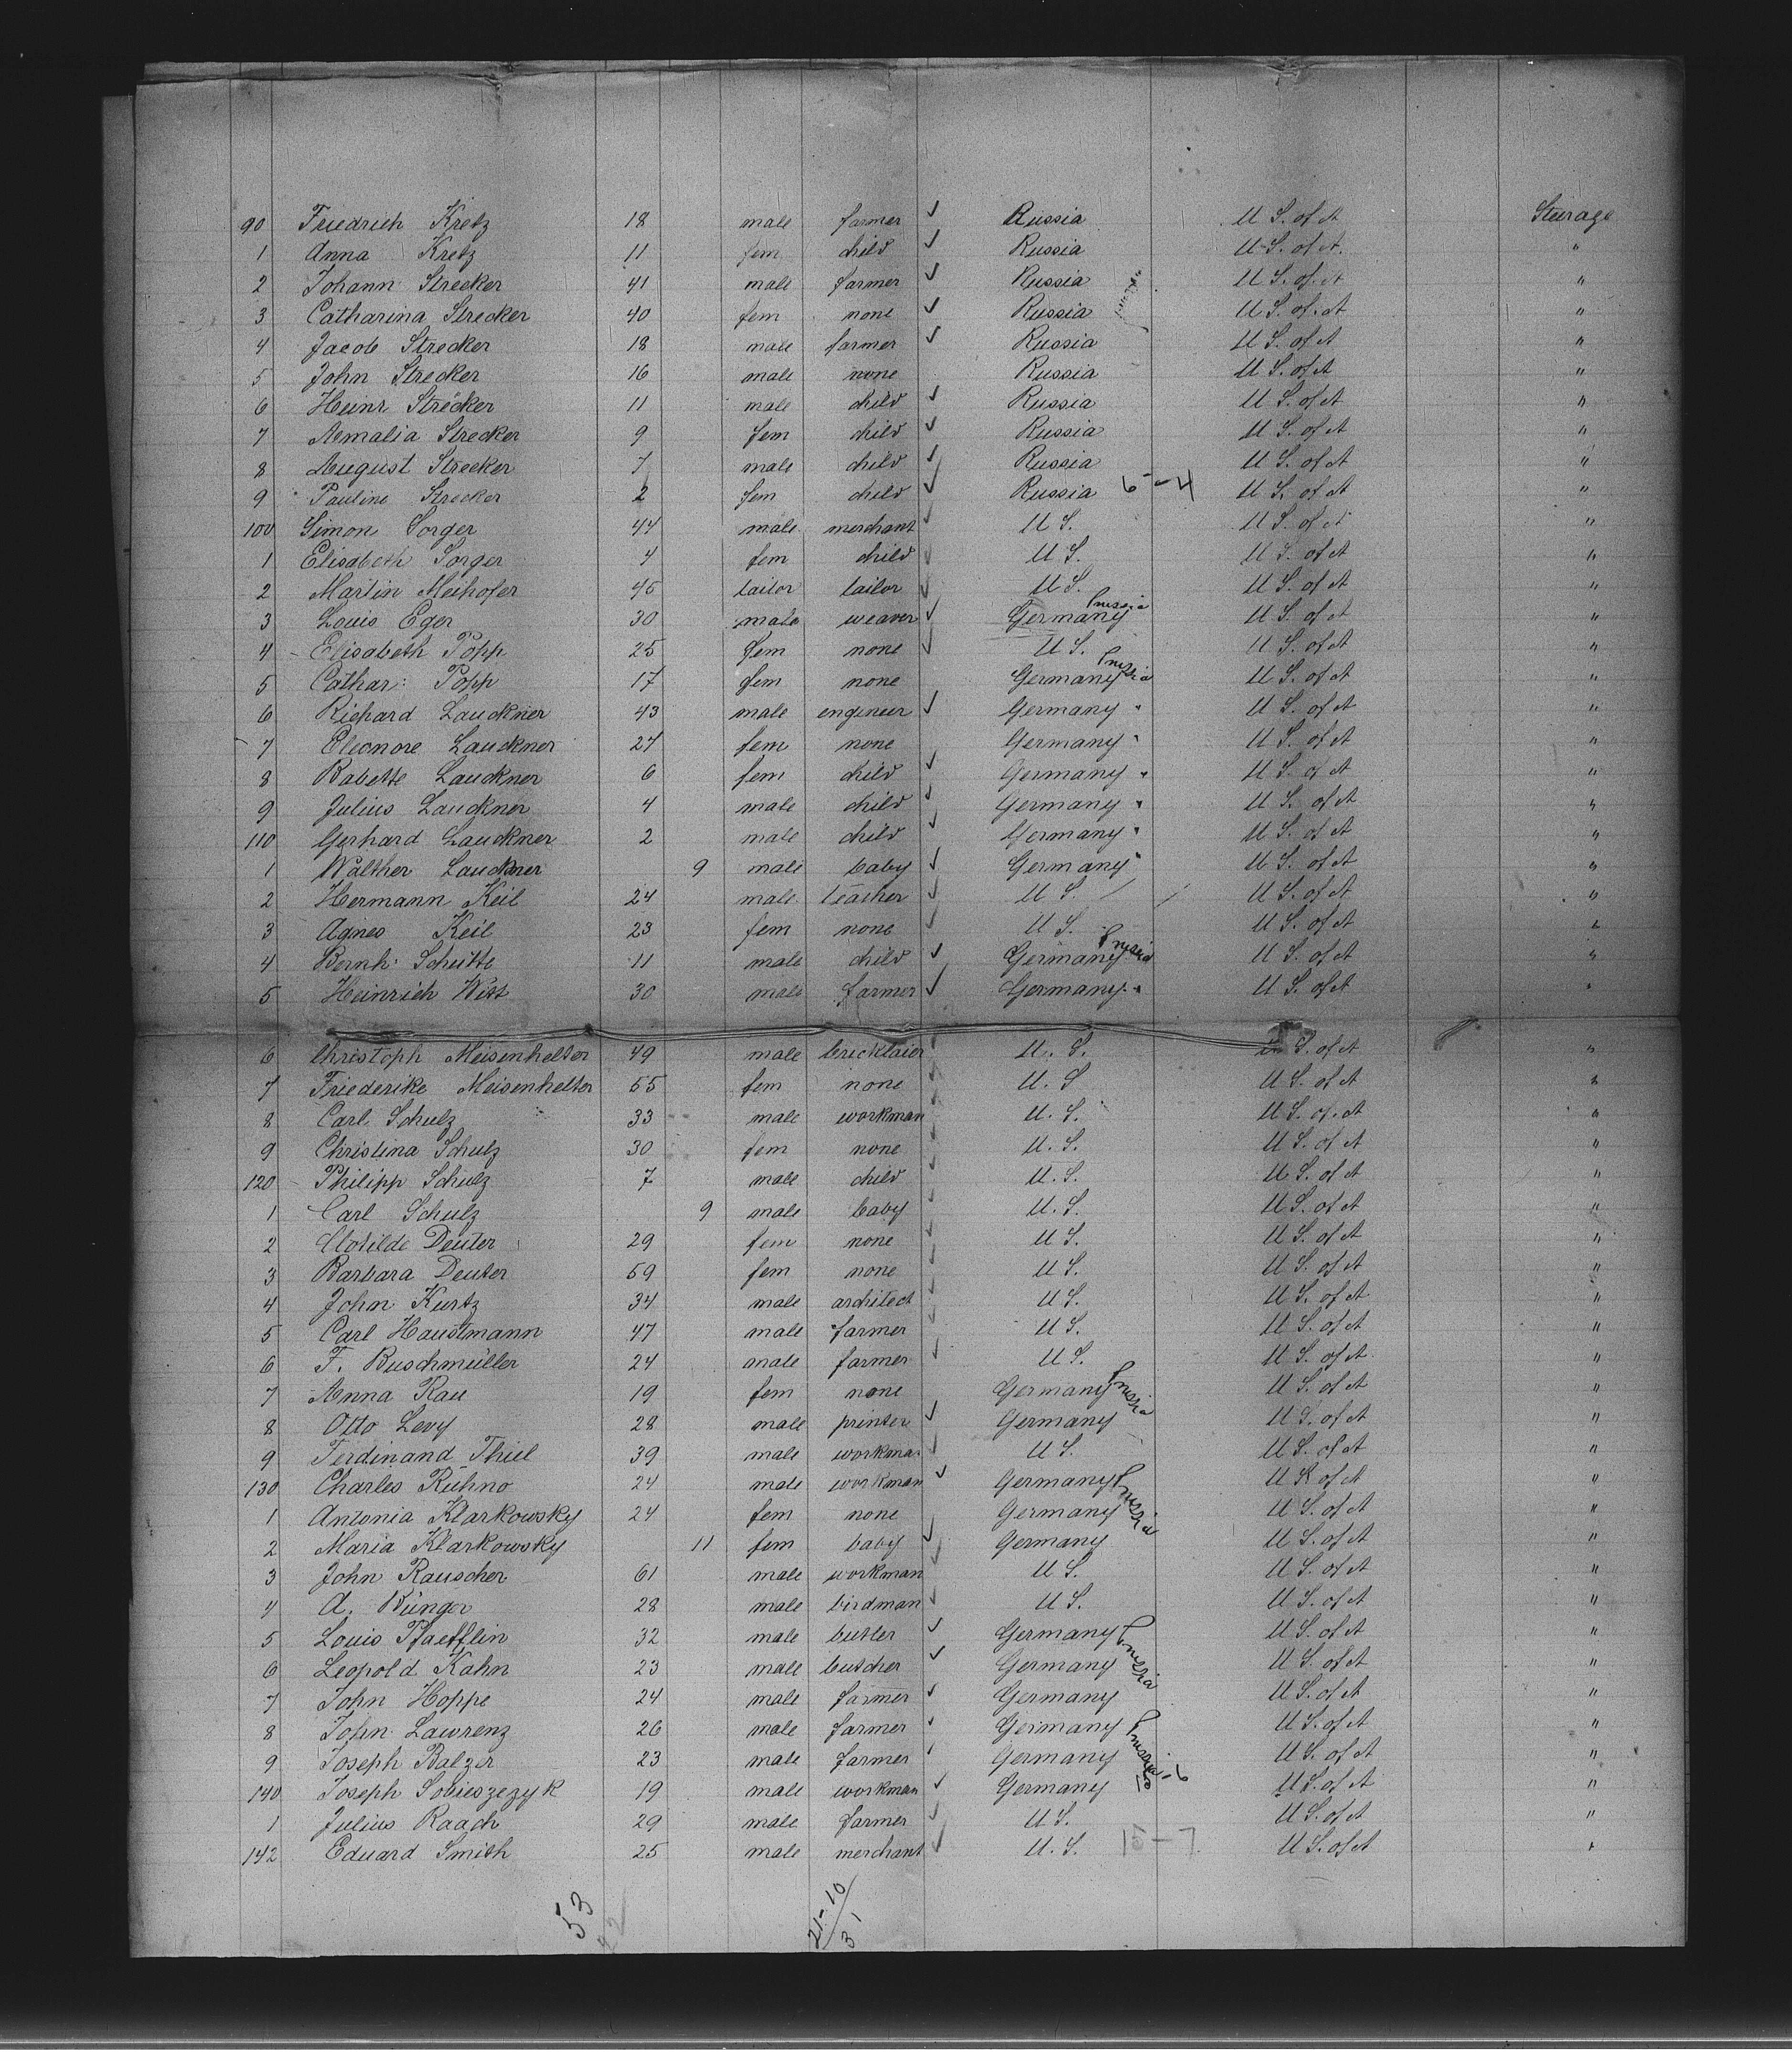 90 Friedrich Kretz 18 male farmer ✓ Russia U S. of A Steurage
1 Anna Kretz 11 fem child ✓ Russia U S. of A. "
2 Johann Strecker 41 male farmer ✓ Russia U S. of A "
3 Catharina Strecker 40 fem none ✓ Russia U S. of A "
4 Jacob Strecker 18 male farmer ✓ Russia U S. of A "
5 John Strecker 16 male none Russia U S. of A "
6 Heinr Strecker 11 male child ✓ Russia U S. of A "
7 Aemalia Strecker 9 fem child ✓ Russia U S. of A "
8 August Strecker 7 male child ✓ Russia U S. of A "
9 Pauline Strecker 2 fem child ✓ Russia 6-4 U S. of A "
100 Simon Sorger 44 male merchant ✓ U S. U S. of A "
1 Elisabeth Sorger 4 fem child ✓ U S. U S. of A "
2 Martin Meihofer 45 tailor tailor ✓ U S. U S. of A "
3 Louis Eger 30 male weaver ✓ Germany Prussia U S. of A "
4 Elisabeth Popp 25 fem none ✓ U S. U S. of A "
5 Cathar: Popp 17 fem none Germany Prussia U S. of A "
6 Richard Lauckner 43 male engineer ✓ Germany " U S. of A "
7 Eleonore Lauckner 24 fem none Germany " U S. of A "
8 Babette Lauckner 6 fem child ✓ Germany " U S. of A "
9 Julius Lauckner 4 male child ✓ Germany " U S. of A "
110 Gerhard Lauckner 2 male child ✓ Germany " U S. of A "
1 Walther Lauckner 9 male baby ✓ Germany " U S. of A "
2 Hermann Keil 24 male teacher ✓ U S. U S. of A "
3 Agnes Keil 23 fem none ✓ U S. U S. of A "
4 Bernh: Schütte 11 male child ✓ Germany Prussia U S. of A "
5 Heinrich Witt 30 male farmer ✓ Germany " U S. of A "
6 Christoph Meisenhelter 49 male bricklaier ✓ U. S. U S. of A "
7 Friederike Meisenhelter 55 fem none ✓ U. S U S. of A "
8 Carl Schulz 33 male workman U. S. U S. of A "
9 Christina Schulz 30 fem none ✓ U. S. U S. of A "
120 Philipp Schulz 7 male child ✓ U. S. U S. of A "
1 Carl Schulz 9 male baby ✓ U. S. U S. of A "
2 Clotilde Deuter 29 fem none ✓ U S. U S. of A "
3 Barbara Deuter 59 fem none ✓ U S. U S. of A "
4 John Kurtz 34 male architect ✓ U S. U S. of A "
5 Carl Haustmann 47 male farmer ✓ U S. U S. of A "
6 F. Buschmüller 24 male farmer ✓ U S. U S. of A "
7 Anna Rau 19 fem none Germany Prussia U S. of A "
8 Otto Levy 28 male printer ✓ Germany U S. of A "
9 Ferdinand Thiel 39 male workman ✓ U S. U S. of A "
130 Charles Kühno 24 male workman ✓ Germany Prussia U S. of A "
1 Antonia Klarkowsky 24 fem none Germany U S. of A "
2 Maria Klarkowsky 11 fem baby ✓ Germany U S. of A "
3 John Rauscher 61 male workman ✓ U S. U S. of A "
4 A. Bünger 28 male birdman ✓ U S. U S. of A "
5 Louis Pfaefflin 32 male butler ✓ Germany Prussia U S. of A "
6 Leopold Kahn 23 male butcher ✓ Germany U S. of A "
7 John Hoppe 24 male farmer ✓ Germany U S. of A "
8 John Lawrenz 26 male farmer ✓ Germany Prussia U S. of A "
9 Joseph Balzer 23 male farmer ✓ Germany U S. of A "
140 Joseph Sobieszezyk 19 male workman ✓ Germany U S. of A "
1 Julius Raach 29 male farmer ✓ U S. U S. of A "
142 Eduard Smith 25 male merchant ✓ U. S. 15-7 U S. of A "
53
21-10
31